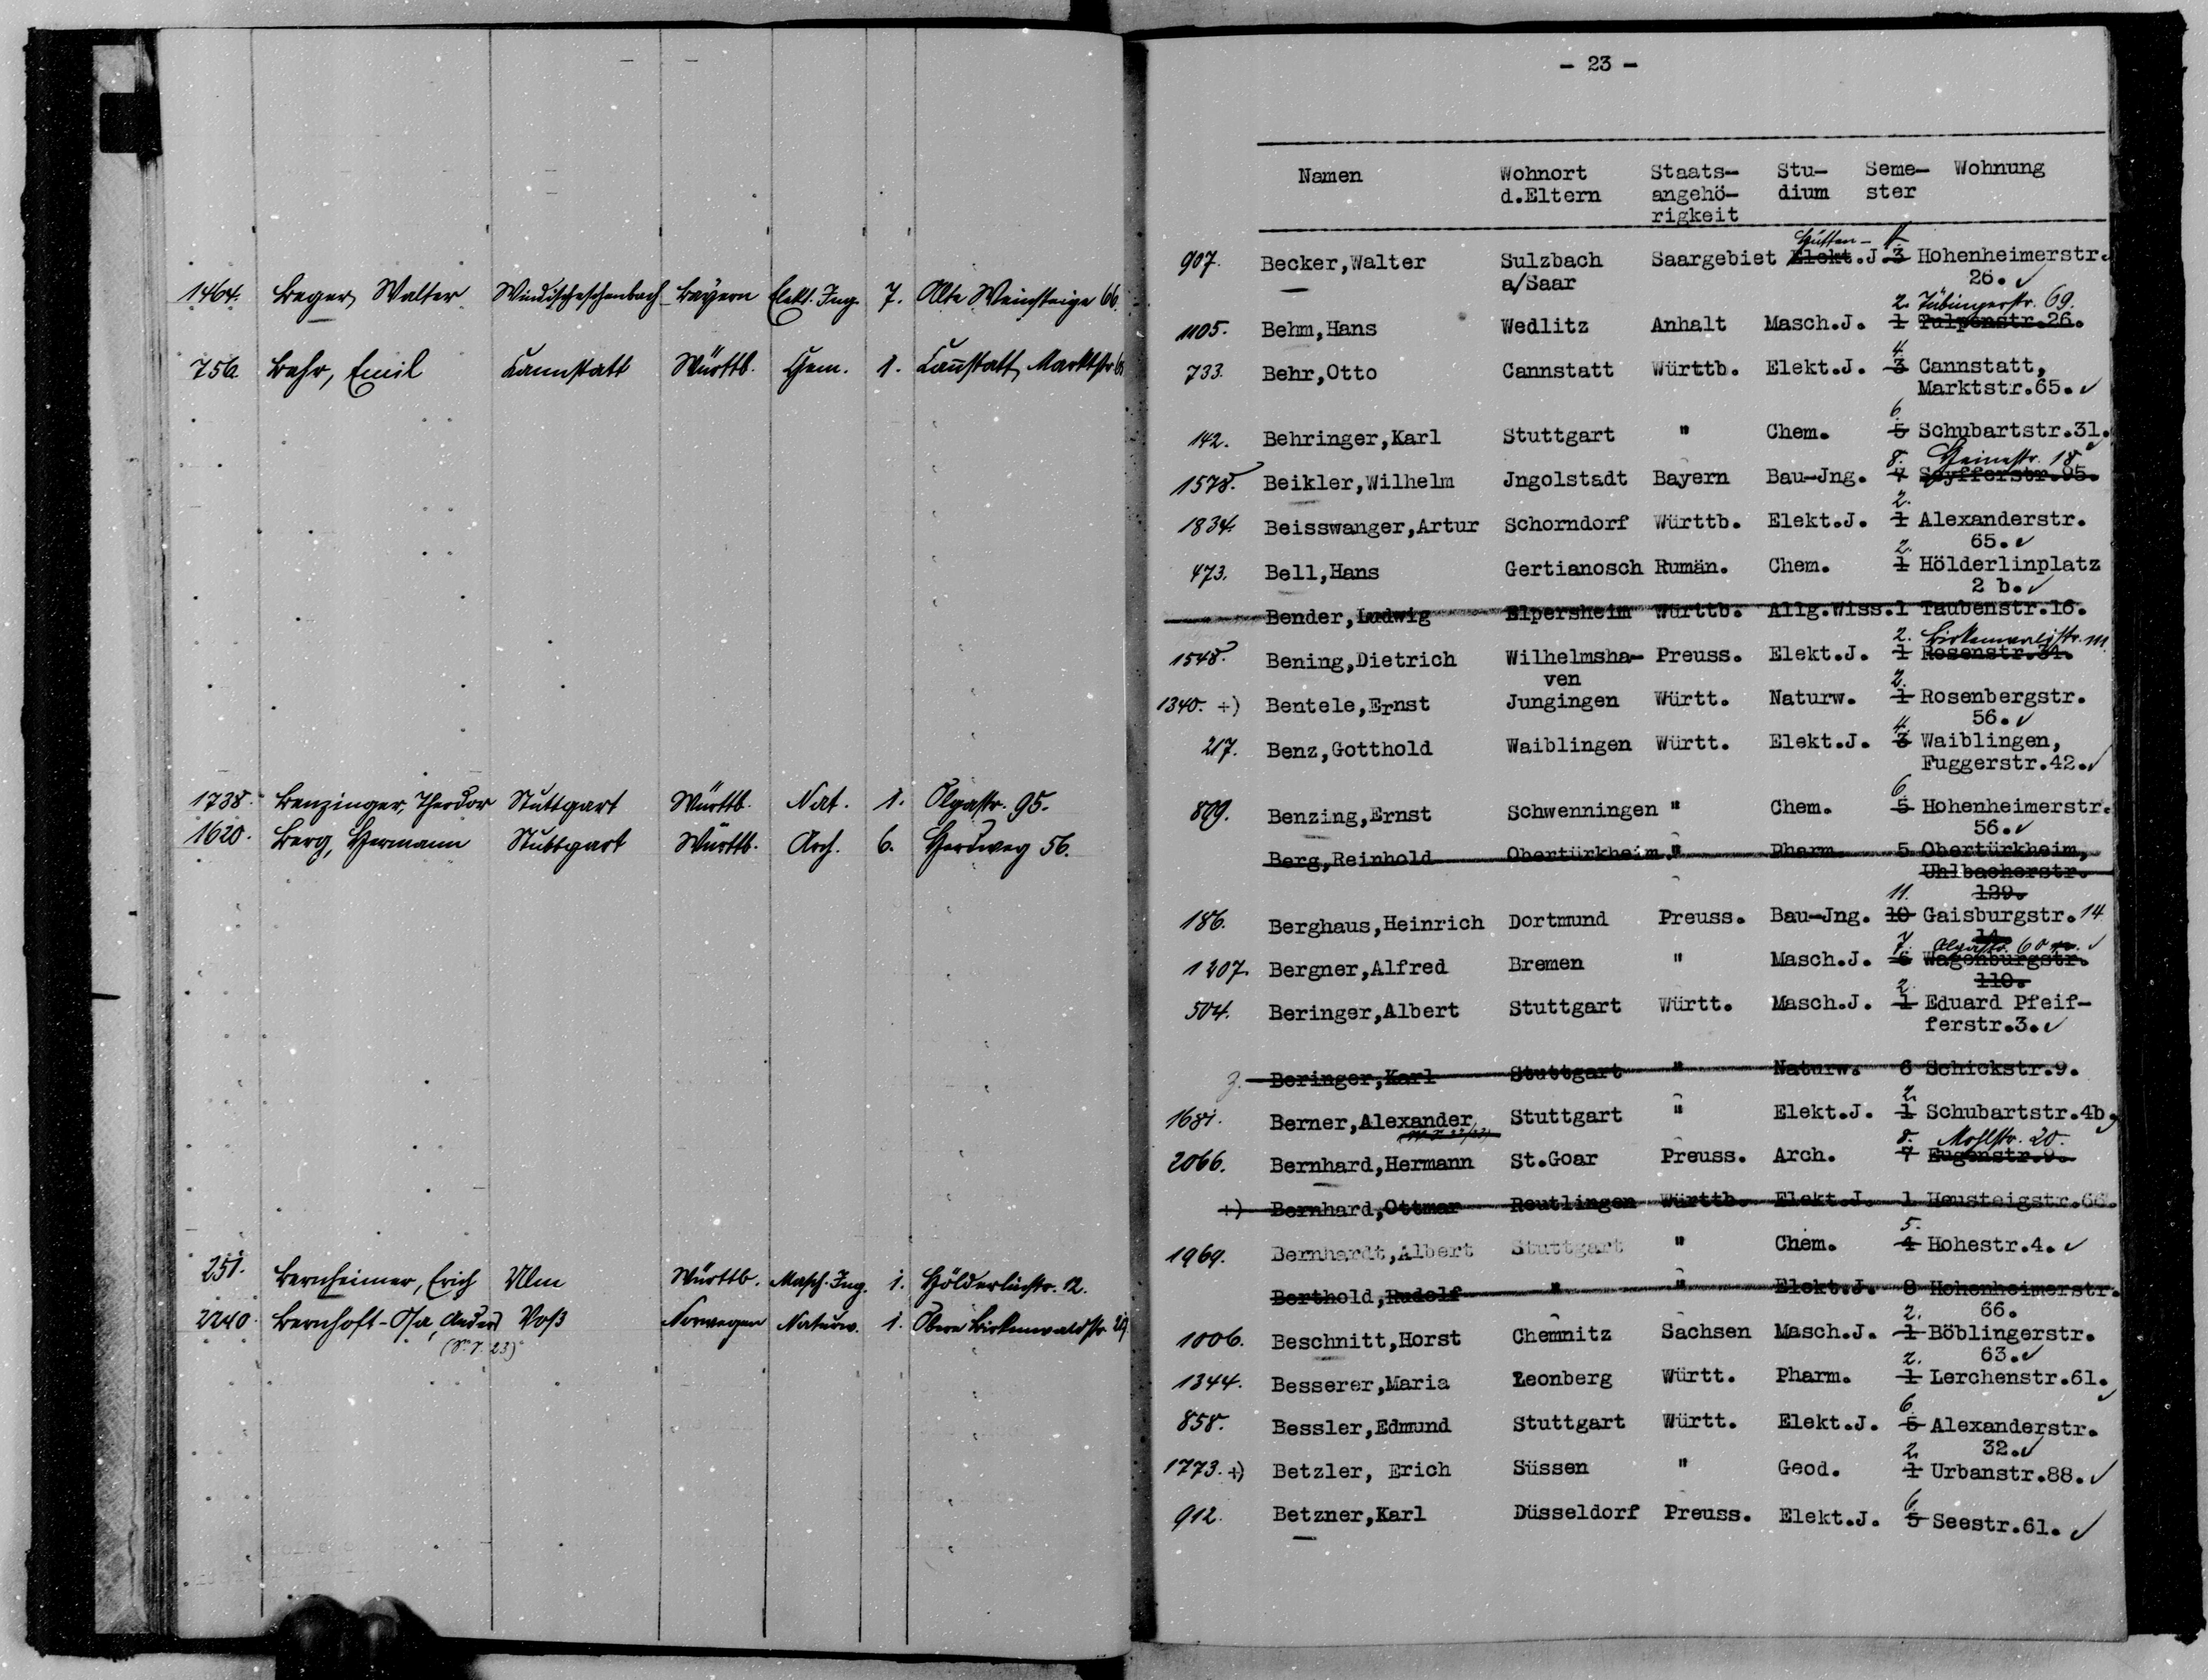 1464. Beger, Walter Windischeschenbach Bayern Elekt. Ing. 7. Alte Weinsteige 66.
756. Behr, Emil Cannstatt Württb. Chem. 1. Cannstatt, Marktstr. 65
1738. Benzinger, Theodor Stuttgart Württb. Nat. 1. Olgastr. 95.
1620. Berg, Hermann Stuttgart Württb. Arch. 6. Herdweg 56.
251. Bernheimer, Erich Ulm Württb. Masch. Ing. 1. Hölderlinstr. 12.
2240. Bernhoft-Osa, Anders Voß Norwegen Naturw. 1. Obere Birkenwaldstr.
(S.S. 23)
- 23 -
Namen Wohnort Staats- Stu- Seme- Wohnung
d.Eltern angehö- dium ster
rigkeit
Hütten- 4.
907. Becker,Walter Sulzbach Saargebiet Elekt.J. 3 Hohenheimerstr.
a/Saar 26.
2. Tübingerstr. 69.
1105. Behm,Hans Wedlitz Anhalt Masch.J. 1 Tulpenstr.26.
4.
733. Behr,Otto Cannstatt Württb. Elekt.J. 3 Cannstatt,
Marktstr.65.
6.
142. Behringer,Karl Stuttgart " Chem. 5 Schubartstr.31.
8. Heinestr. 18
1578. Beikler,Wilhelm Jngolstadt Bayern Bau-Jng. 7 Seyfferstr.95.
2.
1834. Beisswanger,Artur Schorndorf Württb. Elekt.J. 1 Alexanderstr.
65.
2.
473. Bell,Hans Gertianosch Rumän. Chem. 1 Hölderlinplatz
2 b.
Bender,Ludwig Elpersheim Württb. Allg.Wiss.1 Taubenstr.16.
2. Birkenwaldstr. 111
1548. Bening,Dietrich Wilhelmsha- Preuss. Elekt.J. 1 Rosenstr.34.
ven
2.
1340. +) Bentele,Ernst Jungingen Württ. Naturw. 1 Rosenbergstr.
56.
4.
217. Benz,Gotthold Waiblingen Württ. Elekt.J. 3 Waiblingen,
Fuggerstr.42.
6.
899. Benzing,Ernst Schwenningen " Chem. 5 Hohenheimerstr.
56.
Berg,Reinhold Obertürkheim " Pharm. 5 Obertürkheim,
Uhlbacherstr.
139.
11.
186. Berghaus,Heinrich Dortmund Preuss. Bau-Jng. 10 Gaisburgstr. 14
14.
7. Olgastr. 60
1207. Bergner,Alfred Bremen " Masch.J. 6 Wagenburgstr.
110.
2.
504. Beringer,Albert Stuttgart Württ. Masch.J. 1 Eduard Pfeif-
ferstr.3.
Beringer,Karl Stuttgart " Naturw. 6 Schickstr.9.
2.
1681. Berner,Alexander Stuttgart " Elekt.J. 1 Schubartstr.4b
8. Mohlstr. 20.
2066. Bernhard,Hermann St.Goar Preuss. Arch. 7 Eugenstr.9.
+) Bernhard,Ottmar Reutlingen Württb. Elekt.J. 1 Heusteigstr.66.
5.
1969. Bernhardt,Albert Stuttgart " Chem. 4 Hohestr.4.
Berthold,Rudolf " " Elekt.J. 8 Hohenheimerstr.
66.
2.
1006. Beschnitt,Horst Chemnitz Sachsen Masch.J. 1 Böblingerstr.
63.
2.
1344. Besserer,Maria Leonberg Württ. Pharm. 1 Lerchenstr.61.
6.
858. Bessler,Edmund Stuttgart Württ. Elekt.J. 5 Alexanderstr.
32.
2.
1773. +) Betzler, Erich Süssen " Geod. 1 Urbanstr.88.
6.
912. Betzner,Karl Düsseldorf Preuss. Elekt.J. 5 Seestr.61.